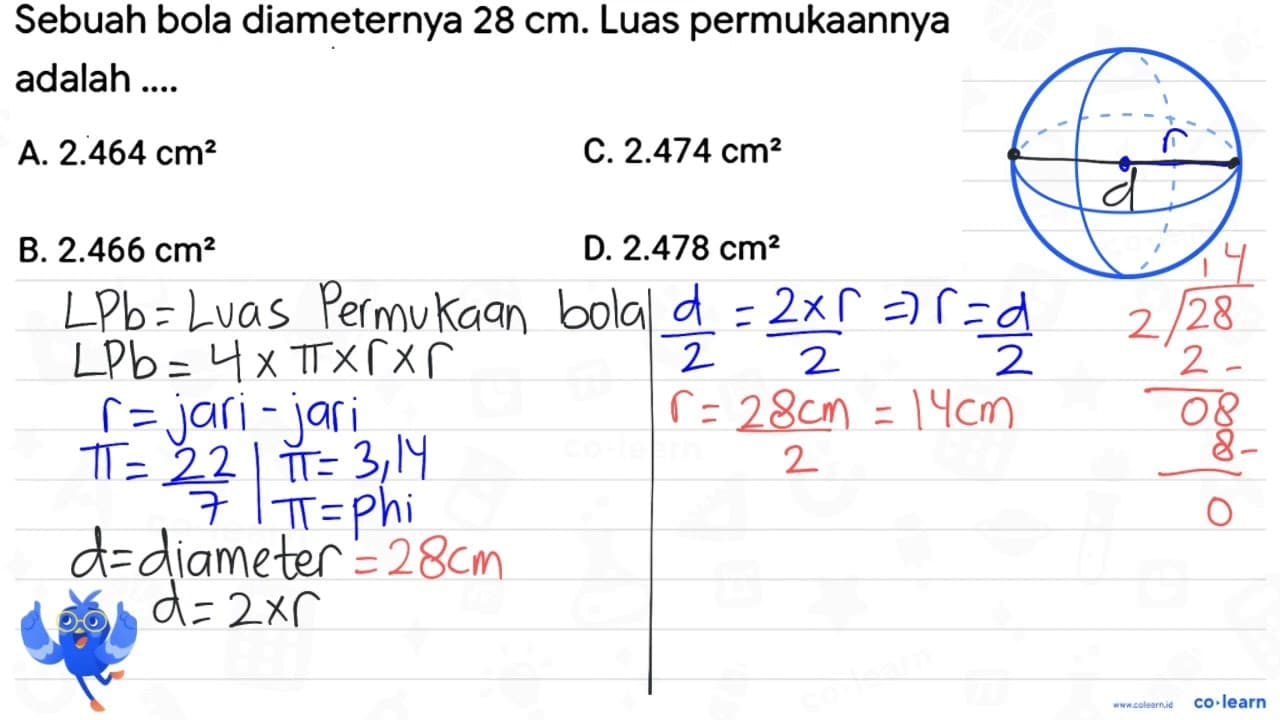 Sebuah bola diameternya 28 cm. Luas permukaannya
adalah ....
A. 2.464 cm²
C. 2.474 cm²
B. 2.466 cm²
D. 2.478 cm²
r
d
LPb = Luas Permukaan bola
LPb = 4 x π x r x r
r = jari - jari
π = 22/7 | π = 3,14
π = phi
d = diameter = 28 cm
d = 2 x r
d/2 = 2 x r/2 => r = d/2
r = 28 cm/2 = 14 cm
14
2/28
2 -
08
8 -
0
www.colearn.id co·learn